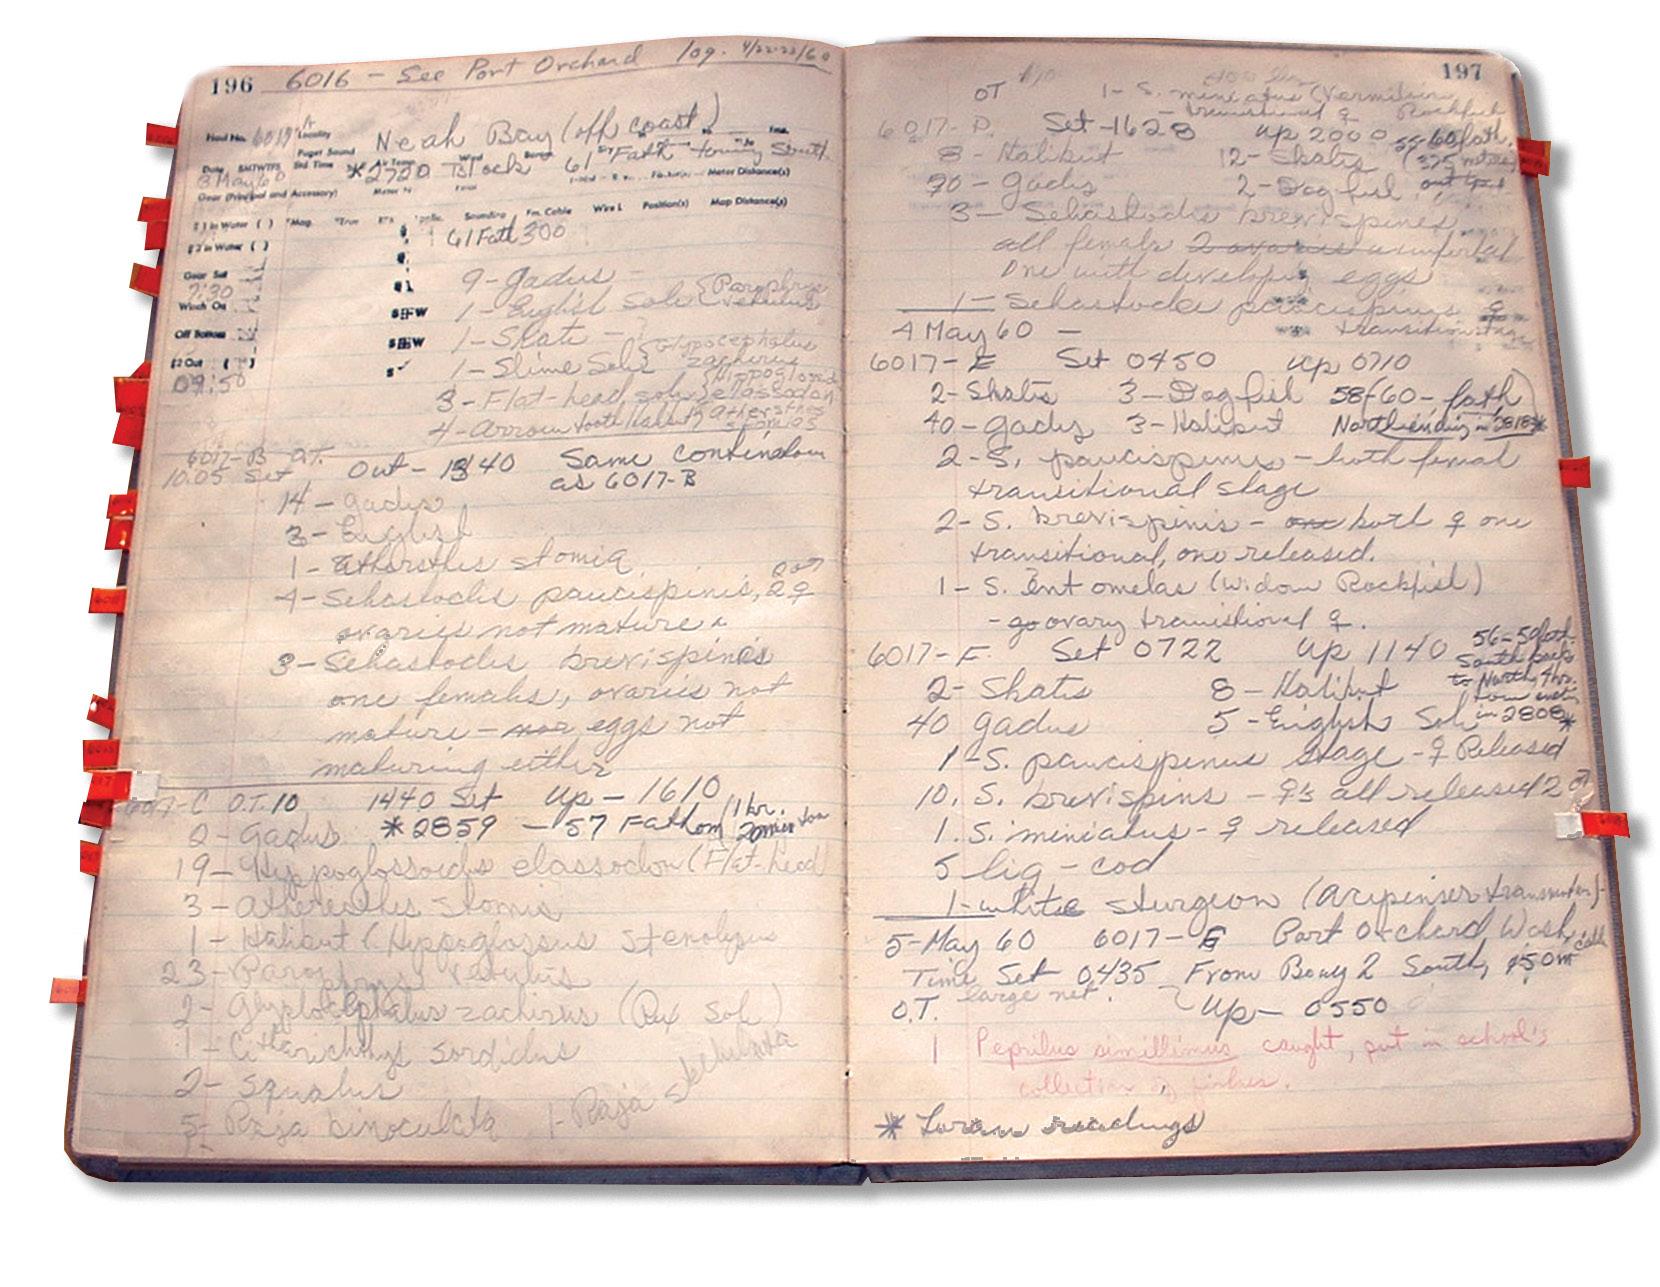 196 6016 - See Port Orchard log. 4/22-23/60
Haul No. 6017 A Locality Neah Bay (off coast)
Puget Sound
Date SMTWTFS Std Time Air Temp. Wind
3 May 60 *2720 61 Fath towing South
Gear (Principal and Accessory) Meter Distance(s)
#1 in Water ( ) Mag. True Sounding Fm. Cable Wire L Position(s) Map Distance(s)
#2 in Water ( ) 61 Fath 300
Gear Set
7:30 9 - Gadus
Winch On 1 - English Sole {Parophrys vetulus
Off Bottom 1 - Skate -
#2 Out ( ) 1 - Slime Sole {Glyptocephalus zachirus
09:50 3 - Flat-head sole {Hippoglossoides elassodon
4 - Arrow tooth Halibut {Atheresthes stomias
6017-B O.T.
10:05 Set Out - 1340 Same
as 6017-B
14 - Gadus
3 - English
1 - Atheresthes stomia
4 - Sebastodes paucispinis, 2♀
ovaries not mature
3 - Sebastodes brevispinis
one females, ovaries not
mature - nor eggs not
maturing either
6017-C O.T. 10 1440 Set Up - 1610
2 - Gadus *2859 - 57 Fathom / 1 hr. 20 min tow
19 - Hyppoglossoids elassodon (Flat-head)
3 - Atheresthes stomis
1 - Halibut (Hyppoglossus stenolypus
23 - Parophrys vetulus
2 - Glyptocephalus zachirus (Rex Sole)
1 - Citharichthys sordidus
2 - Squalus
5 - Raja binoculata 1 - Raja
197
OT 1 - S. miniatus (Vermilion
transitional ♀ Rockfish
6017-D. Set - 1628 Up 2000 55-60 fath.
8 - Halibut 12 - Skates (325 meters)
30 - Gadus 2 - Dog fish
3 - Sebastodes brevispines
all female 2 ovaries
One with developing eggs
1 - Sebastodes paucispinis ♀
transition stg.
4 May 60 -
6017-E Set 0450 Up 0710
2 - Skates 3 - Dog fish 58-60 - fath
40 - Gadus 3 - Halibut North ending in 2818*
2 - S. paucispinis - both femal
transitional stage
2 - S. brevispinis - one both ♀ one
transitional, one released.
1 - S. Entomelas (Widow Rockfish)
- go ovary transitional ♀.
6017-F Set 0722 Up 1140 56-59 fath.
South back
to North, 4 hr.
2 - Skates 8 - Halibut
40 Gadus 5 - English Sole in 2808*
1 - S. paucispinus stage - ♀ Released
10. S. brevispins - ♀'s all released 2♂
1. S. miniatus - ♀ released
5 lig - cod
1 - white sturgeon (Acipenser transmontan)
5 - May 60 6017-G Port Orchard Wash.
Time Set 0435 From Bouy 2 South, 150m cable
O.T. large net. Up - 0550
1 Peprilus simillimus caught, put in school's
collection of fishes.
* Loran readings